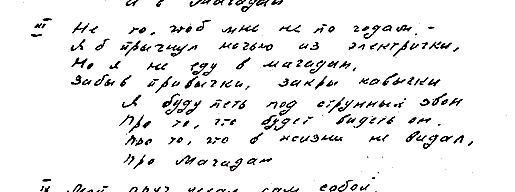 и в Магадан
III Не то, чтоб мне не по годам, -
Я б прыгнул ночью из электрички,
Но я не еду в Магадан,
Забыв привычки, закрыв кавычки
Я буду петь под струнный звон
Про то, что будет видеть он.
Про то, что в жизни не видал,
Про Магадан
IV Мой друг уехал сам собой,